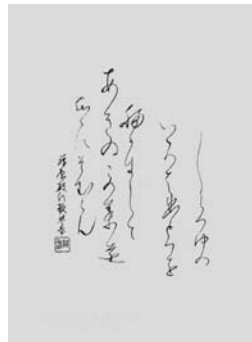 しらつゆの
いろはひとつを
いかにして
あきのこの葉を
ちゝにそむらん
藤原敏行歌